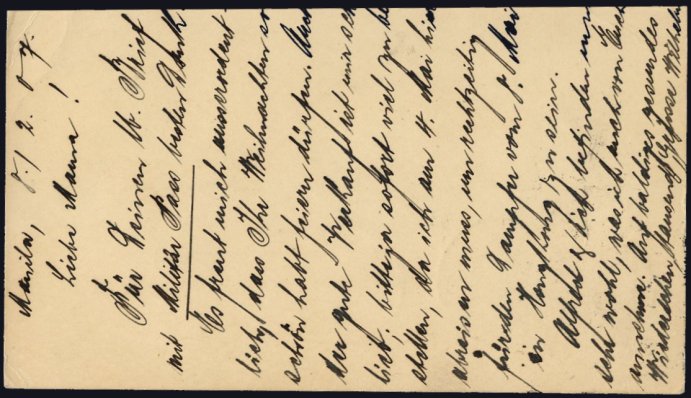 Manila, 8./2. 07.
Liebe Mama!
Für Deinen lb. Brief
mit Militär Pass besten Dank.
Es freut mich ausserordent-
lich, dass Ihr Weihnachten so
schön habt feiern dürfen.
der gute
lieb. bitte ja sofort viel zu be-
stellen, da ich am 4. Mai hier
abreisen muss, um rechtzeitig
für den Dampfer vom 8. Mai
in Hongkong zu sein.
Alfred & ich befinden uns
sehr wohl, was ich auch von Euch
annehme. Auf baldiges gesundes
Wiedersehen Grüsse Wilhelm